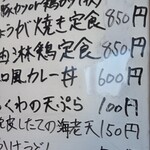 ょうが焼き定食 850円
油淋鶏定食 850円
和風カレー丼 600円
くわの天ぷら 100円
たての海老天 150円